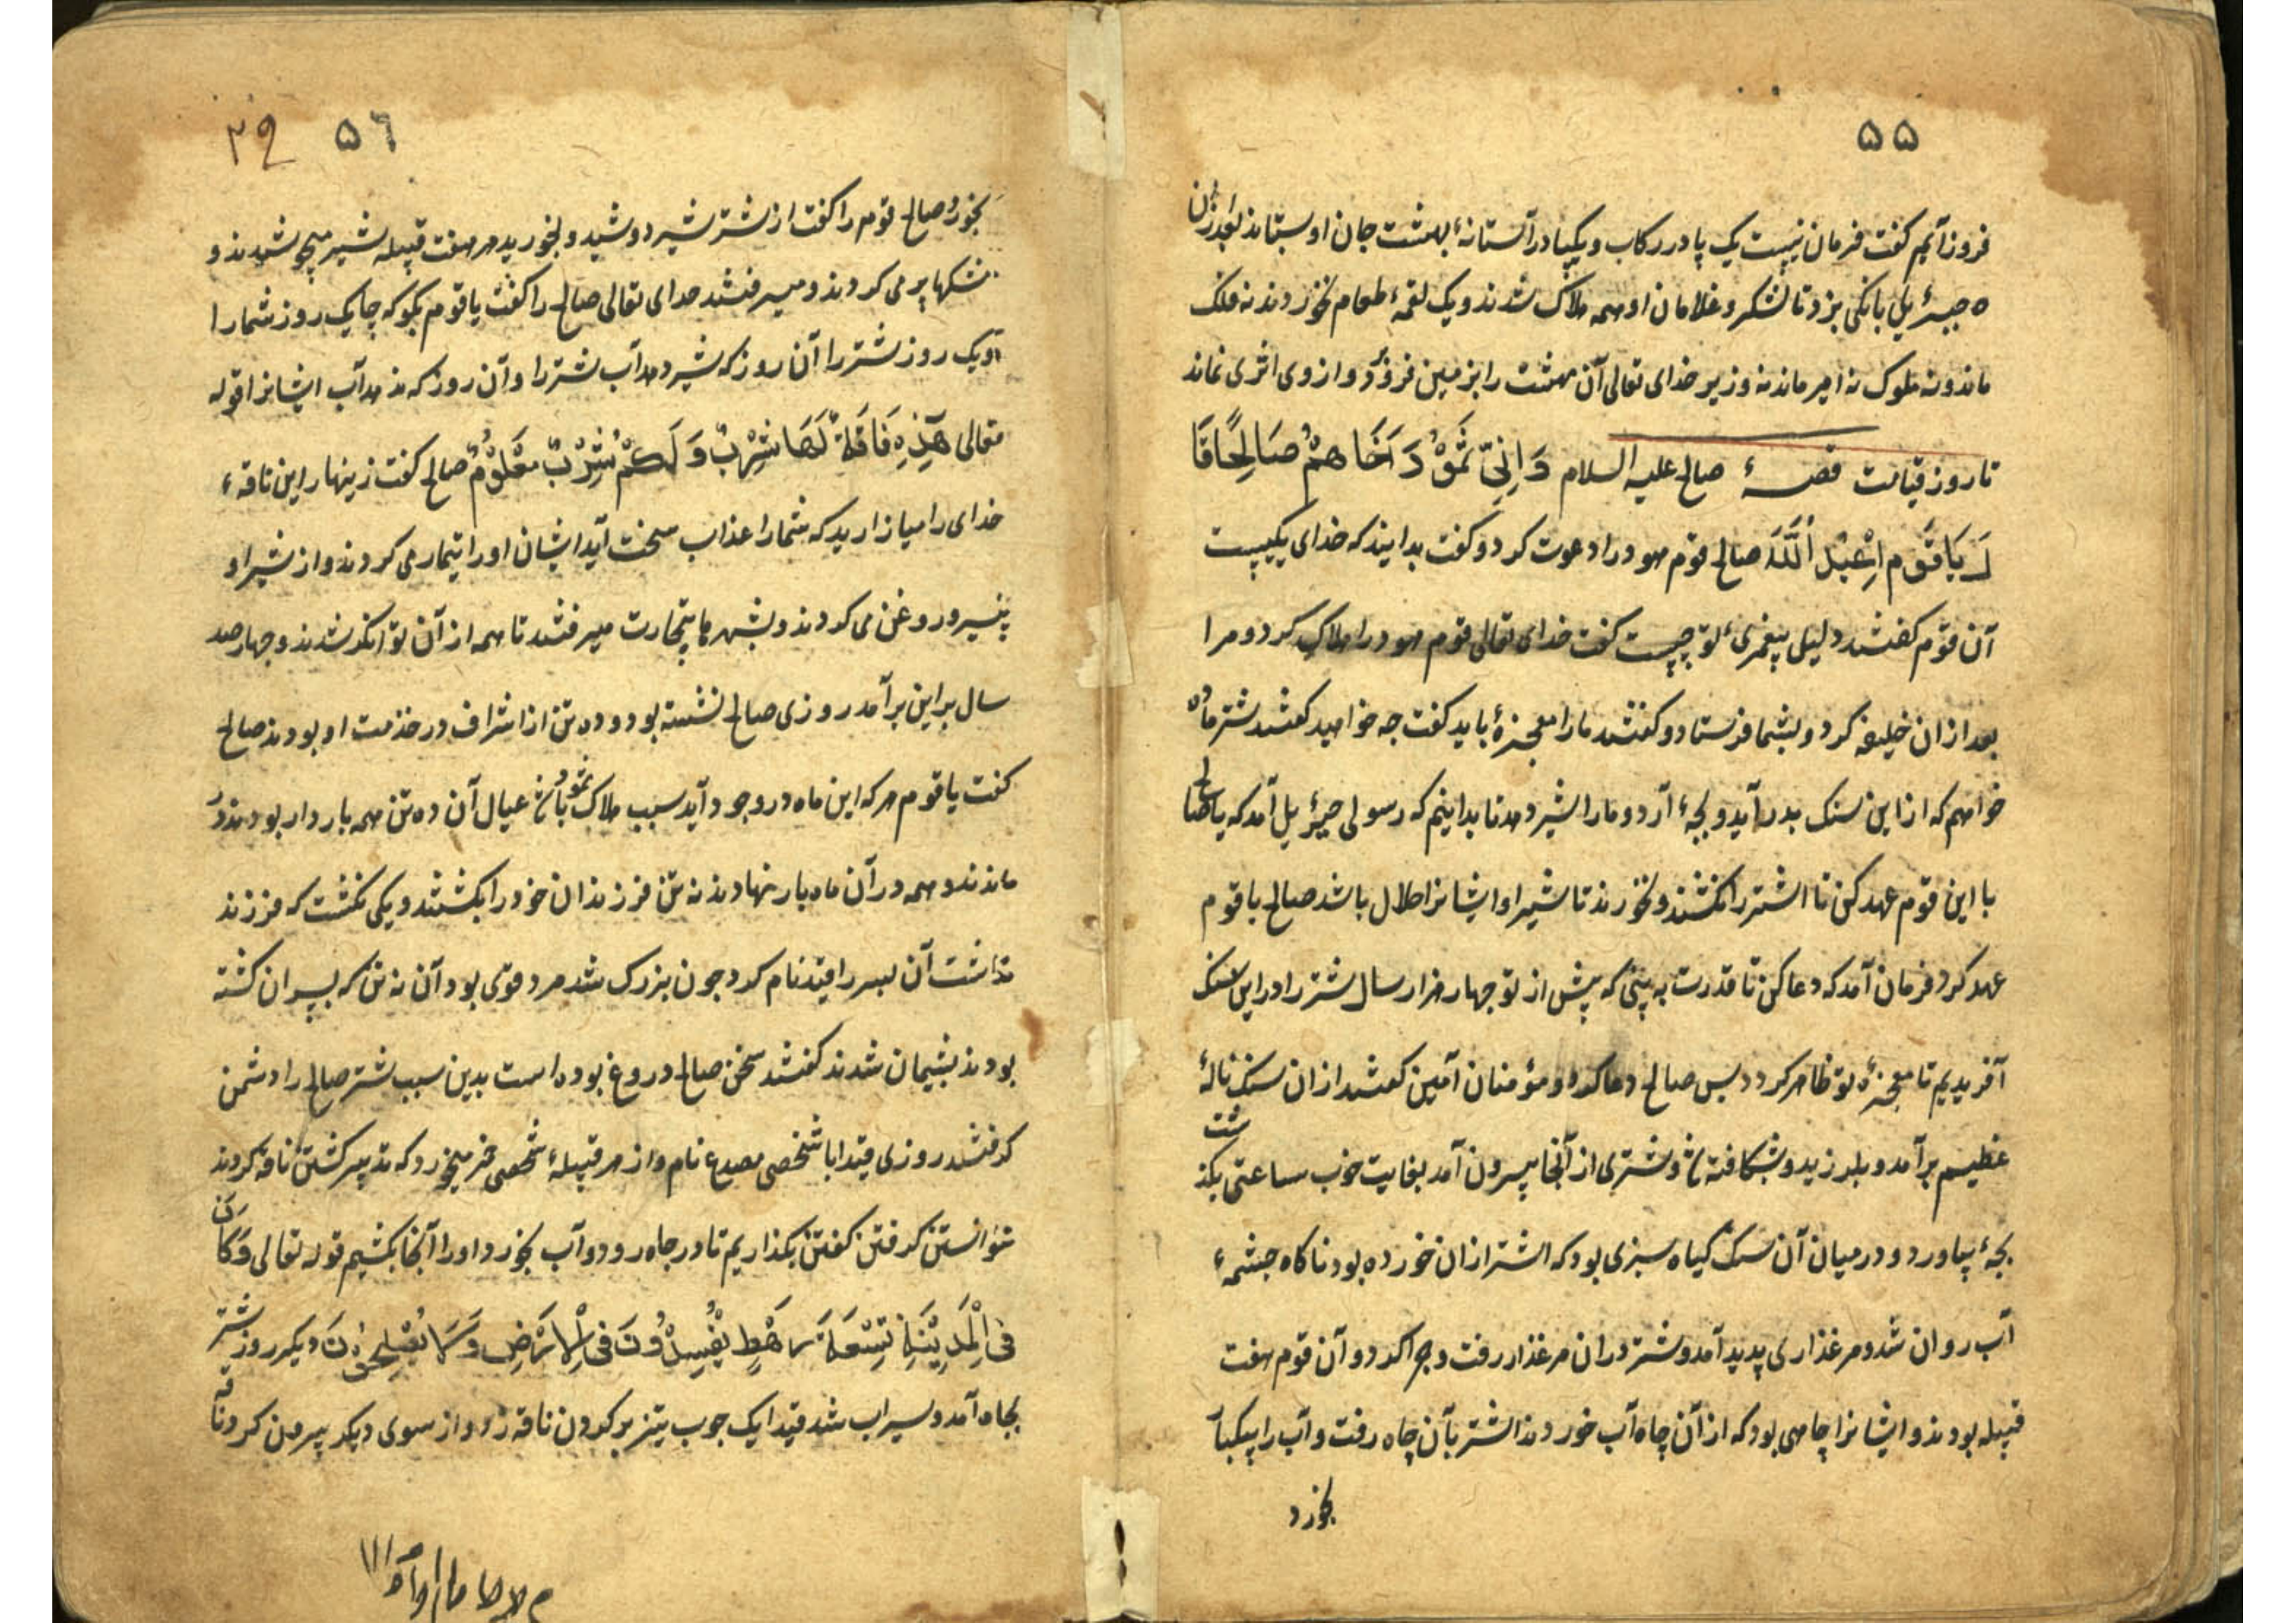 ۵۵
فروز آیم کفت فرمان نیست یک پا در رکاب و یکپا در آستانهٔ بهشت جان او ستاند بعد ازان
ه جبرئیل بانکی بزد تا لشکر و غلامان او همه هلاک شدند و یک لقمهٔ طعام نخوردند نه ملک
ماند و نه ملوک نه امیر ماند نه وزیر خدای تعالی آن بهشت را بزمین فرو برد و از وی اثری نماند
تا روز قیامت قصهٔ صالح علیه السلام وَاِلیٰ ثَمُوْدَ اَخَاهُمْ صَالِحًا قَا
لَ یَاقَوْمِ اعْبُدُ اللّٰهَ صالح قوم هود را دعوت کرد و کفت بدانیند که خدای یکیست
آن قوم کفتند دلیل پیغمبریٔ تو چیست کفت خدای تعالی قوم هود را هلاک کرد و مرا
بعد ازان خلیفه کرد و بشما فرستاد و کفتند ما را معجزهٔ باید کفت چه خواهید کفتند شتر ماده
خواهم که از این سنک بدر آید و بچهٔ آرد و ما را شیر دهد تا بدانیم که رسولی جبرئیل آمد که یا صالح
با این قوم عهد کن تا اشتر را نکشند و نخورند تا شیر او ایشانرا حلال باشد صالح با قوم
عهد کرد فرمان آمد که دعا کن تا قدرت به بینی که پیش از تو چهار هزار سال شتر را در این سنک
آفریدیم تا معجزهٔ تو ظاهر کردد پس صالح دعا کرد و مؤمنان آمین کفتند ازان سنک نالهٔ
عظیم برآمد و بلرزید و بشکافته شد و شتری از آنجا بیرون آمد بغایت خوب ساعتی بکذشت
بچهٔ بیاورد و در میان آن سنک کیاه سبزی بود که اشتر ازان خورده بود ناکاه چشمهٔ
آب روان شد و مرغذاری پدید آمد و شتر دران مرغذار رفت و چرا کرد و آن قوم هفت
قبیله بودند و ایشانرا چاهی بود که از آن چاه آب خوردند اشتر بآن چاه رفت و آب را بیکبار
بخورد
۵٦ ٣٩
بخورد صالح قوم را کفت از شتر شیر دوشید و بخورید هر هفت قبیله شیر میدوشیدند و
مشکها پر می کردند و میرفتند خدای تعالی صالح را کفت یا قوم بکو که چا یک روز شما را
و یک روز شتر را آن روز که شیر دهد آب شتر را و آن روز که ندهد آب ایشانرا قوله
تعالی هٰذِہٖ نَاقَةٌ لَهَا شِرْبٌ وَلَکُمْ شِرْبُ مَعْلُوْمٍ صالح کفت زینهار این ناقهٔ
خدای را میازارید که شما را عذاب سخت آید ایشان او را تیمار می کردند و از شیر او
پنیر و روغن می کردند و بشهرها بتجارت میرفتند تا همه از آن توانکر شدند و چهار صد
سال بر این برآمد روزی صالح نشسته بود و ده تن از اشراف در خدمت او بودند صالح
کفت یا قوم هر که این ماه در وجود آید سبب هلاک ثمود باشد عیال آن ده تن همه باردار بودند در
ماندند و همه در آن ماه بار نهادند نه تن فرزندان خود را بکشتند و یکی نکشت که فرزند
نداشت آن پسر را قیدا نام کرد چون بزرک شد مرد قوی بود آن نه تن که پسران کشته
بودند پشیمان شدند کفتند سخن صالح دروغ بوده است بدین سبب شتر صالح را دشمن
کرفتند روزی قیدا با شخصی مصدع نام و از هر قبیلهٔ شخصی خمر میخورد که تدبیر کشتن ناقه کردند
نتوانستن کرفتن کفتن بکذاریم تا در چاه رود و آب بخورد او را آنجا بکشیم قوله تعالی وَکَانَ
فِی الْمَدِیْنَةِ تِسْعَةُ رَهْطٍ یُّفْسِدُوْنَ فِی الْاَرْضِ وَلَا یُصْلِحُوْنَ دیکر روز شتر
بچاه آمد و سیراب شد قیدا یک چوب تیز بر کردن ناقه زد و از سوی دیکر بیرون کرد ناقه